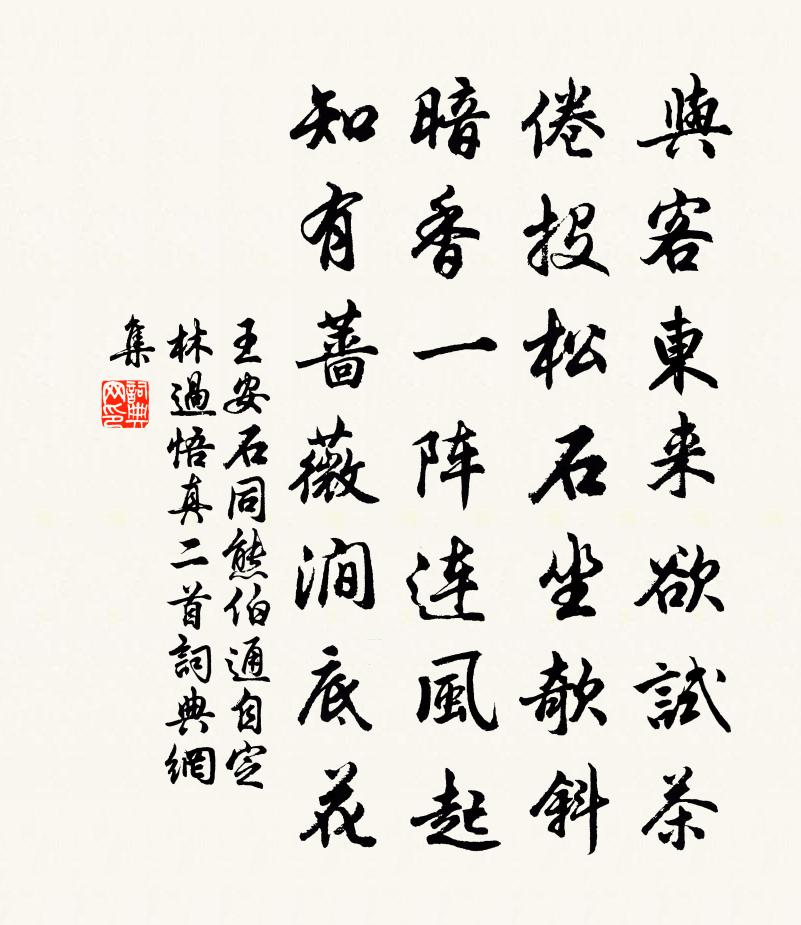 與客東来欲試茶
倦投松石坐欹斜
暗香一阵連風起
知有蔷薇澗底花
王安石同熊伯通自定
林過悟真二首詞典網
集
詞典
网印